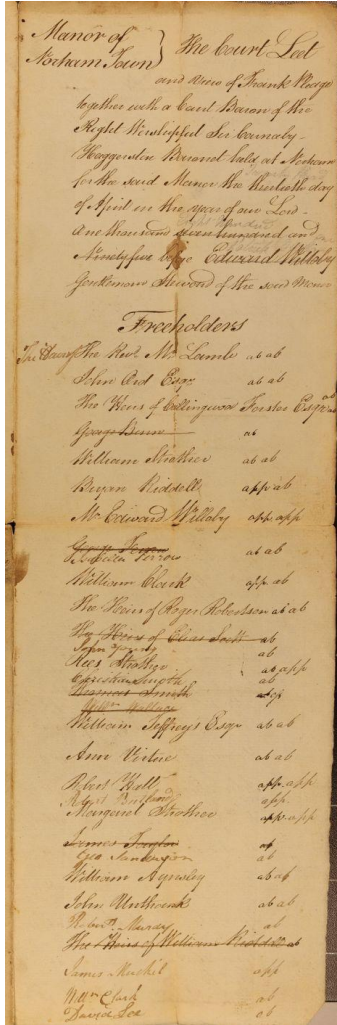 Manor of } The Court Leet
Norham Town
and View of Frank Pledge
together with a Court Baron of the
Right Worshipful Sir Carnaby
Haggerston Baronet held at Norham
for the said Manor the thirtieth day
of April in the year of our Lord
One thousand seven hundred and
Ninetyfive before Edward Willoby
Gentleman Steward of the said Manor
Freeholders
The Rev. Mr Lamb ab ab
John Ord Esqr ab ab
The Heirs of Collingwood Forster Esqr ab
George ab
William Strother ab ab
Bryan Riddell app ab
Mr Edward Willoby app app
ab ab
William Clark app ab
The Heirs of Roger Robertson ab ab
The Heirs of Elias Scott ab
John ab
Rees Strother ab app
Christian Smyth ab
Thomas Smith
William Jeffreys Esqr ab ab
Ann Virtue ab ab
Robert Hall app app
Robert app
Margaret Strother app app
James Taylor
Geo Sanderson ab
William Aynsley ab ab
John Unthank ab ab
Robert ab
The Heirs of William ab
James app
Willm Clark ab
David Lee ab